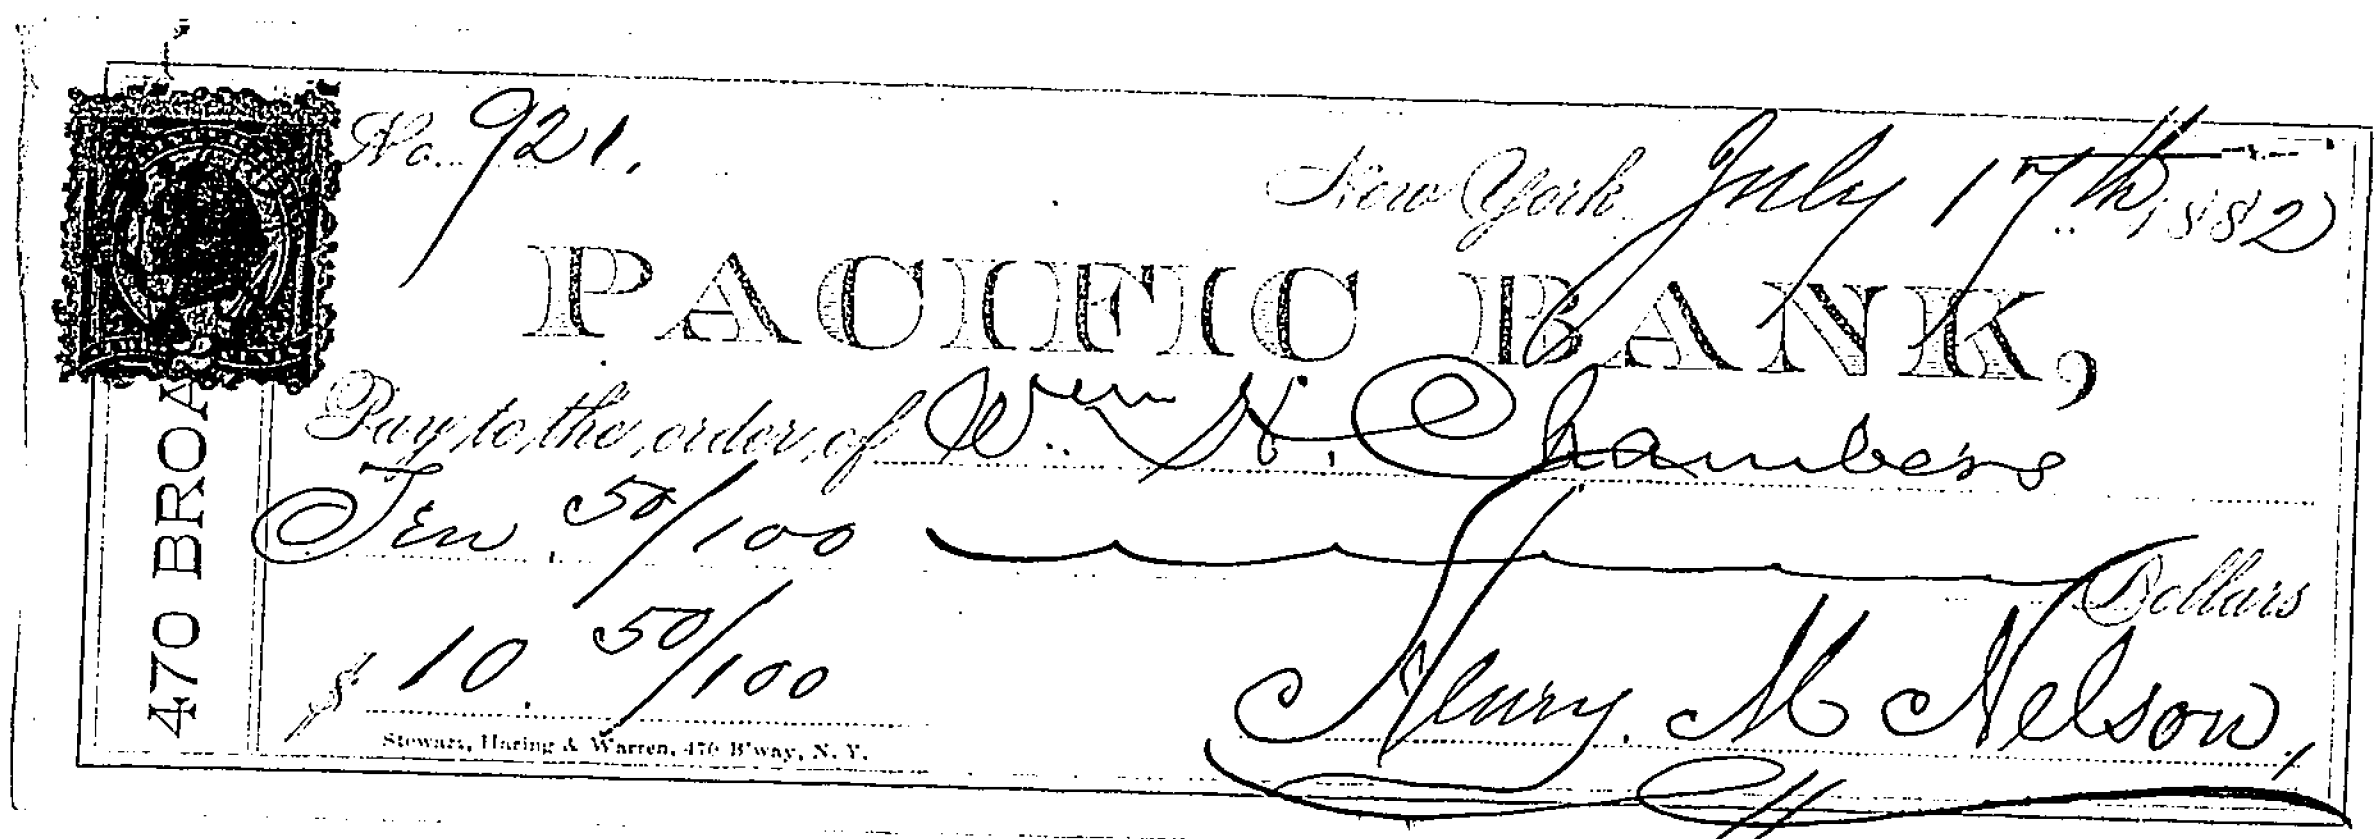 No. 921.
New York July 17th, 1882
PACIFIC BANK,
Pay to the order of Wm. H. Chambers
Ten 50/100 Dollars
$ 10. 50/100
Henry. M Nelson,
Stewart, Haring & Warren, 470 B'way, N. Y.
470 BROA